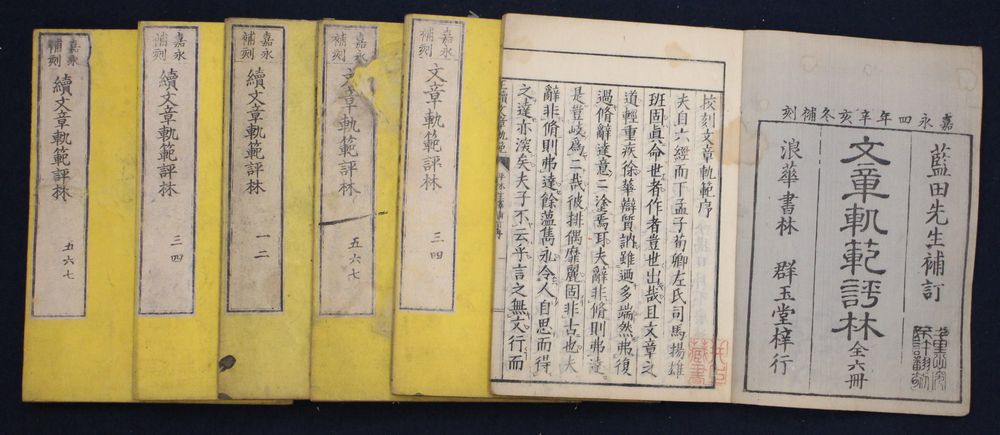 嘉永四年辛亥冬補刻
藍田先生補訂
文章軌範評林 全六冊
浪華書林 群玉堂梓行
校刻文章軌範序
夫自六經而下孟子荀卿左氏司馬揚雄
班固眞命世者作者豈世出哉且文章之
道輕重疾徐華辯質訥雖迺多端然弗復
過脩辭達意二塗焉耳夫辭非脩則弗達
是豈岐爲二哉彼排偶靡麗固非古也夫
辭非脩則弗達餘薀雋永令人自思而得
之達亦深矣夫子不云乎言之無文行而
續文章軌範
嘉永
補刻
文章軌範評林
三四
嘉永
補刻
文章軌範評林
五六七
嘉永
補刻
續文章軌範評林
一二
嘉永
補刻
續文章軌範評林
三四
嘉永
補刻
續文章軌範評林
五六七